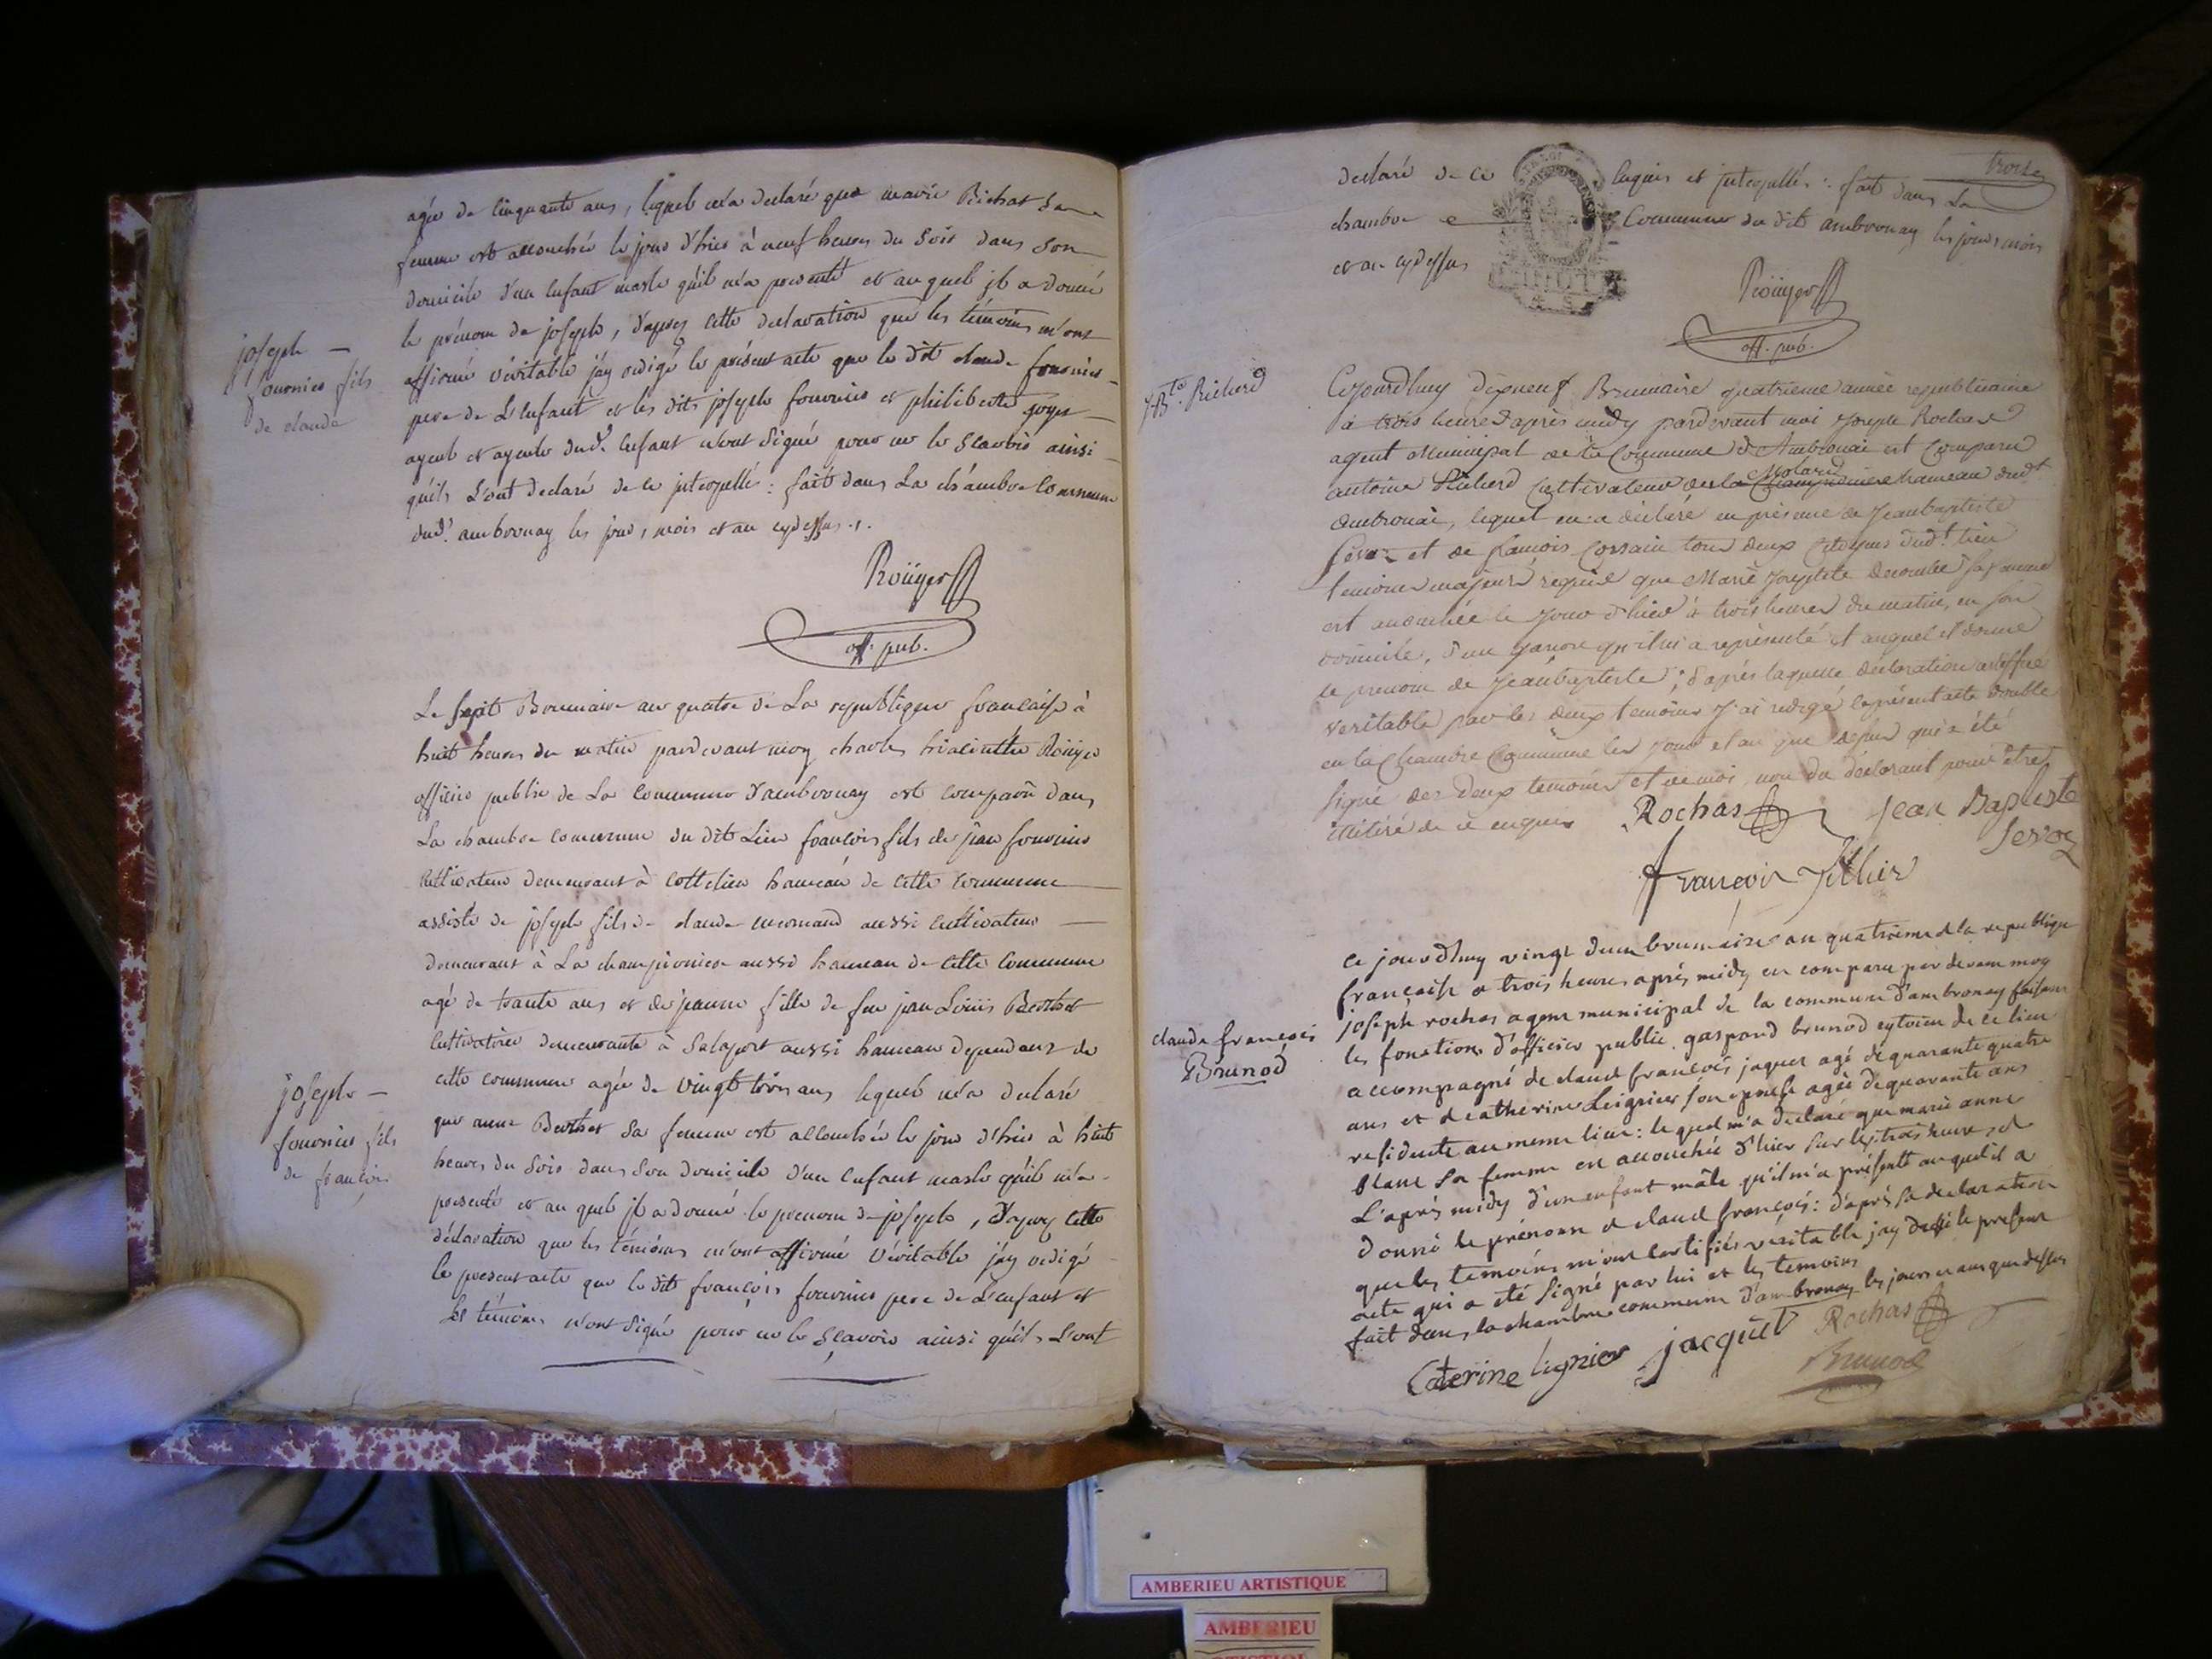 agée de cinquante ans, lequel m'a declaré que marie Richat sa
femme est accouchée le jour d'hier à neuf heures du soir dans son
domicile d'un enfant masle qu'il m'a presenté et auquel il a donné
le prénom de joseph, d'après cette declaration que les témoins m'ont
affirmé véritable j'ay redigé le présent acte que le dit claude fournier
pere de L'enfant et les dits joseph fournier et philiberte
ayeul et ayeule dud. enfant n'ont signé pour ne le scavoir ainsi
qu'ils l'ont declaré de ce interpellés : fait dans La chambre Commune
dud. ambronay les jour, mois et an cy dessus ./.
joseph
fournier fils
de claude
Roüyer
off. pub.
Le sept Brumaire an quatre de La republique francaise à
huit heures du matin pardevant moy charles hiacinthe Roüyer
officier public de La Commune d'ambronay est comparu dans
La chambre commune du dit Lieu francois fils de jean fournier
cultivateur demeurant à cottelieu hameau de cette commune
assisté de joseph fils de claude mornand aussi cultivateur
demeurant à La championiere aussi hameau de cette Commune
agé de trante ans et de jeanne fille de feu jean Louis Berthet
cultivatrice demeurante à Salaport aussi hameau dependant de
cette commune agée de vingt trois ans lequel m'a declaré
que anne Berthet sa femme est accouchée le jour d'hier à huit
heures du soir dans son domicile d'un enfant masle qu'il m'a
presenté et au quel il a donné le prenom de joseph, d'après cette
déclaration que les témoins m'ont affirmé véritable j'ay redigé
le present acte que le dit françois fournier pere de L'enfant et
les témoins n'ont signé pour ne le scavoir ainsi qu'ils L'ont
joseph
fournier fils
de francois
treize
declaré de ce enquis et interpellés : fait dans La
chambre Commune du dit ambronay les jour, mois
et an cy dessus
Roüyer
off. pub.
J. Bte. Richerd
Cejourdhuy dixneuf Brumaire quatrieme année republicaine
à trois heures d'après midy pardevant moi Joseph Rochas
agent Municipal de la Commune d'Ambronai est Comparu
Molard
antoine Richerd Cultivateur de la Championiere hameau dudt
Ambronai, lequel m'a déclaré en présence de Jeanbaptiste
Servoz et de francois tous deux Citoyens dudt lieu
temoins majeurs requis que Marie Josephte sa femme
est accouchée le Jour d'hier à trois heures du matin, en son
domicile, d'un garcon qu'il m'a représenté et auquel il donne
le prenom de Jeanbaptiste ; d'après laquelle déclaration
veritable par les deux temoins J'ai redigé le présent acte double
en la Chambre Commune les Jour et an que dessus qui a été
signé des deux temoins et de moi non du déclarant pour être
illitéré de ce enquis Rochas Jean Baptiste
Servoz
françois
claude francois
Brunod
ce jourdhuy vingt deux brumaire an quatrieme de la republique
française a trois heures après midy en comparu par devant moy
joseph rochas agent municipal de la commune d'ambronay faisant
les fonctions d'officier public gaspard brunod cytoien de ce lieu
accompagné de claud françois jaquet agé de quarante quatre
ans et de catherine Leignier son epouse agée de quarante ans
residente au meme lieu : lequel m'a declaré que marie anne
blanc sa femme en accouchée d'hier sur les trois heures de
L'après midy d'un enfant mâle qu'il m'a présenté auquel il a
donné le prénom de claud françois : d'après sa declaration
que les temoins m'ont certifiés veritable jay dressé le present
acte qui a été signé par lui et les temoins
fait dans la chambre commune d'ambronay les jours et ans que dessus
Caterine lignier jacquet Rochas
Brunod
AMBERIEU ARTISTIQUE
AMBERIEU